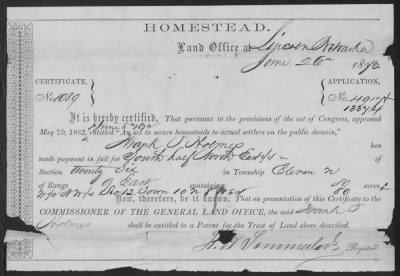 HOMESTEAD.
Land Office at Lincoln Nebraska
June 26th 1873
CERTIFICATE, APPLICATION,
No. 1089 No. 4917
It is hereby certified, That pursuant to the provisions of the act of Congress, approved
May 20, 1862, entitled "An act to secure homesteads to actual settlers on the public domain,"
Frank S Holmes has
made payment in full for South half North East ¼ of
Section twenty Six in Township Eleven N
of Range 9 East containing 80 acres
Now, therefore, be it known, That on presentation of this Certificate to the
COMMISSIONER OF THE GENERAL LAND OFFICE, the said Frank S
Holmes shall be entitled to a Patent for the Tract of Land above described.
Register.